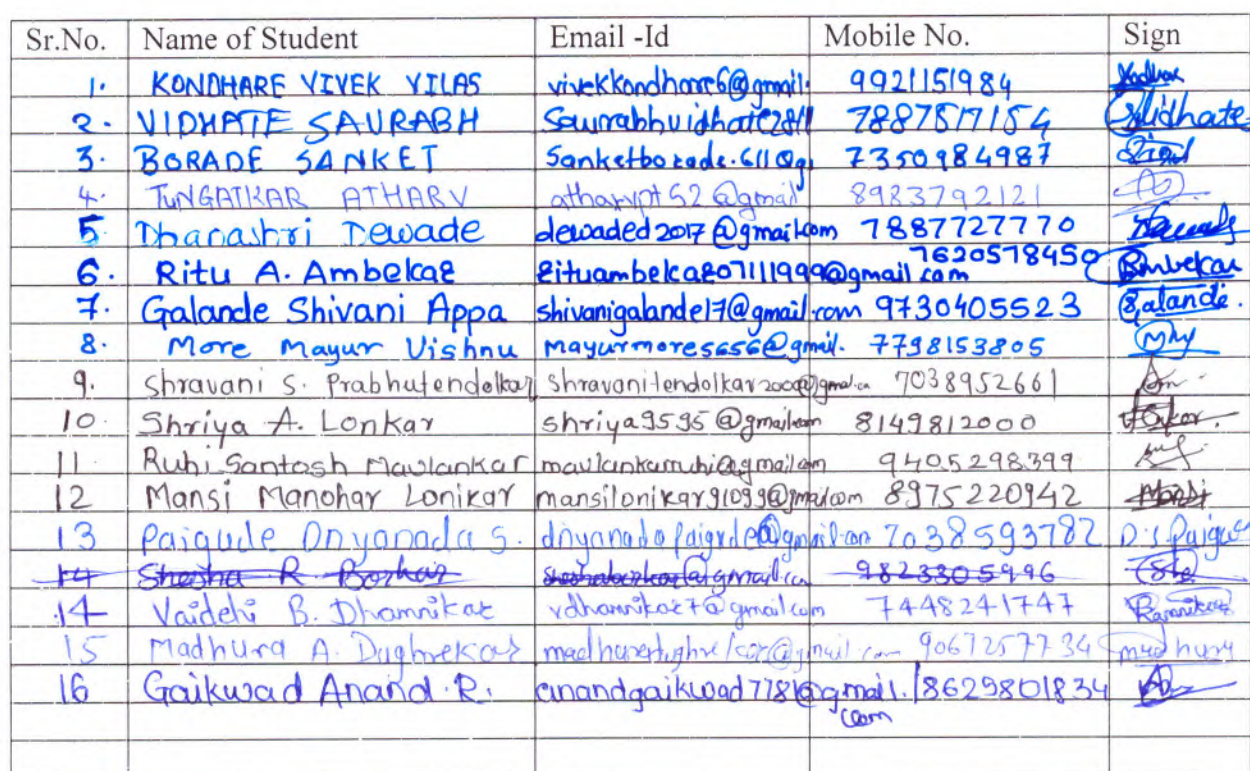 Sr.No. Name of Student Email -Id Mobile No. Sign
1. KONDHARE VIVEK VILAS vivekkondhare6@gmail. 9921151984
2. VIDHATE SAURABH Saurabhvidhate2811 7887517154 Vidhate
3. BORADE SANKET Sanketborade.611@g 7350984987
4. TUNGATKAR ATHARV atharvpt52@gmail 8983792121
5 Dhanashri Dewade dewaded2017@gmail.com 7887727770
6. Ritu A. Ambekar rituambekar07111999@gmail.com 7620578450 Ambekar
7. Galande Shivani Appa shivanigalande17@gmail.com 9730405523 Galande.
8. More Mayur Vishnu mayurmore5656@gmail. 7798153805
9. Shravani S. Prabhutendolkar shravanitendolkar2000@gmail.com 7038952661
10. Shriya A. Lonkar shriya9595@gmail.com 8149812000
11 Ruhi Santosh Mavlankar mavlankarruhi@gmail.com 9405298399
12 Mansi Manohar Lonikar mansilonikar91099@gmail.com 8975220942 Mansi
13 Paigude Dnyanada S. dnyanadapaigude@gmail.com 7038593782 D.S. Paigude
14 Shesha R. Borkar @gmail.com 9823305996
14 Vaidehi B. Dhamnikar vdhamnikar7@gmail.com 7448241747
15 Madhura A. Dughrekar @gmail.com 9067257734 madhura
16 Gaikwad Anand R. anandgaikwad7781@gmail.com 8629801834